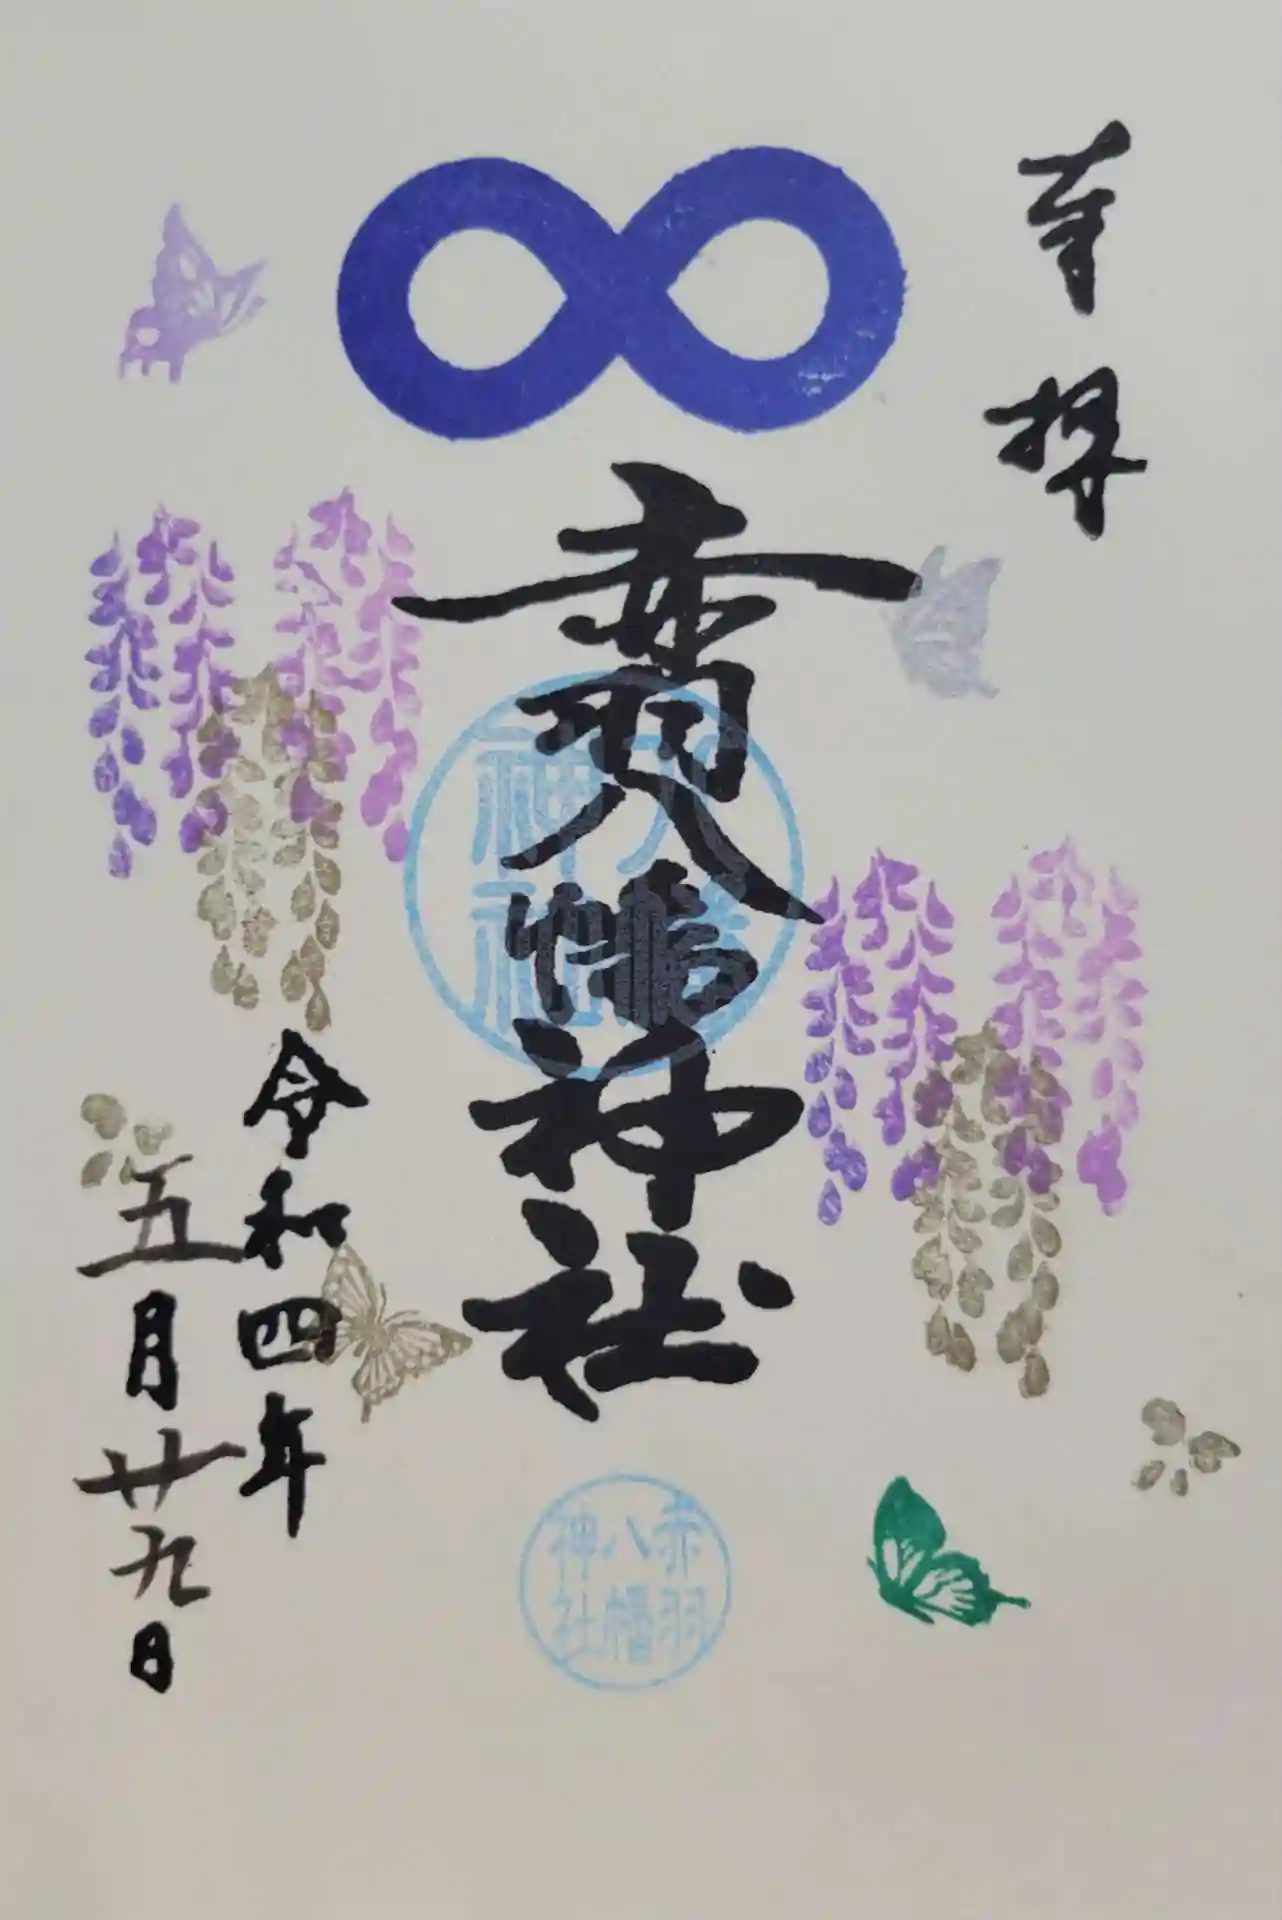 奉拝
赤羽八幡神社
八幡
神社
令和四年
五月廿九日
赤羽
八幡
神社